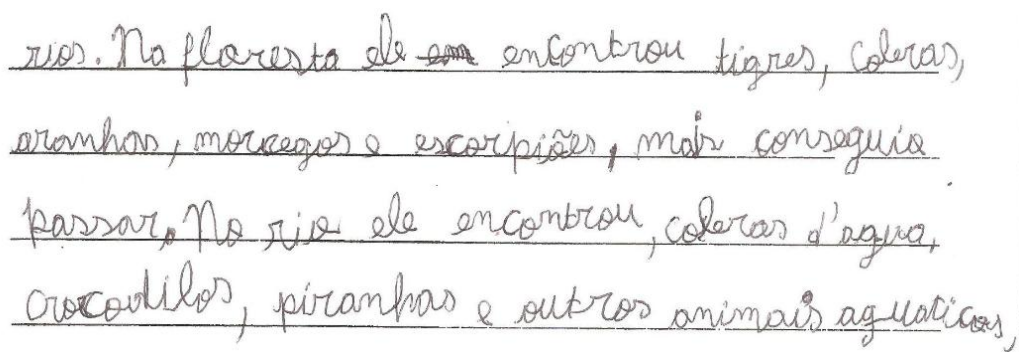 rios. Na floresta ele encontrou tigres, cobras,
aranhas, morcegos e escorpiões, mais conseguio
passar. No rio ele encontrou, cobras d'agua,
crocodilos, piranhas e outros animais aguaticos,